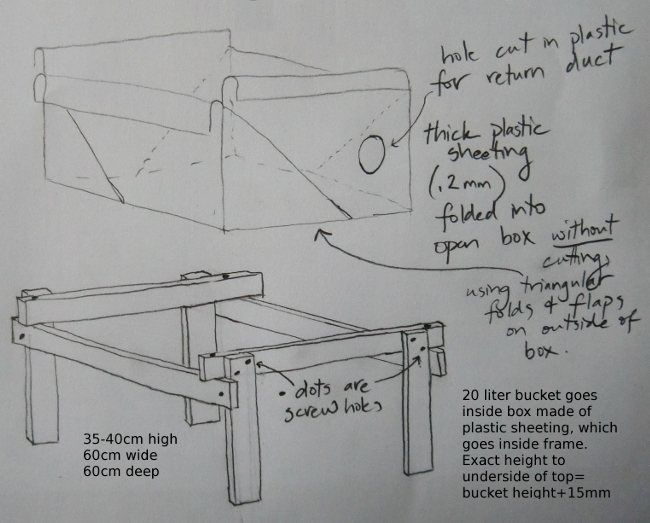 hole cut in plastic
for return duct
thick plastic
sheeting
(.2mm)
folded into
open box without
cutting,
using triangular
folds & flaps
on outside of
box.
• dots are
screw holes
35-40cm high
60cm wide
60cm deep
20 liter bucket goes
inside box made of
plastic sheeting, which
goes inside frame.
Exact height to
underside of top=
bucket height+15mm